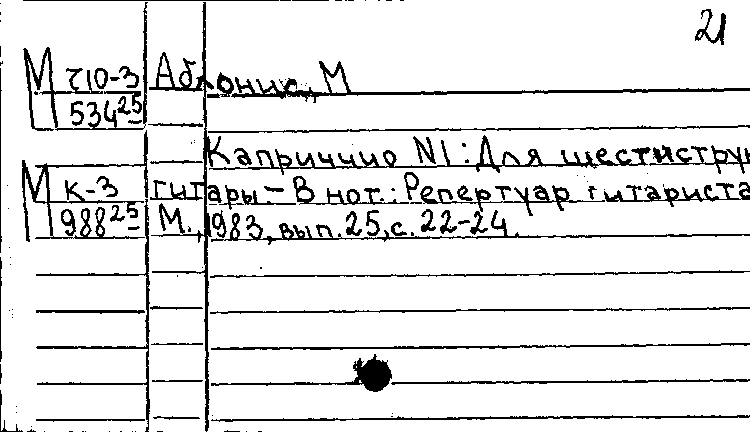 21
М Ч10-3 Аблониц, М
534 25
Каприччио N1: Для шестистру
М К-3 гитары. - В нот.: Репертуар гитариста
988 25 М., 1983, вып. 25, с. 22-24.